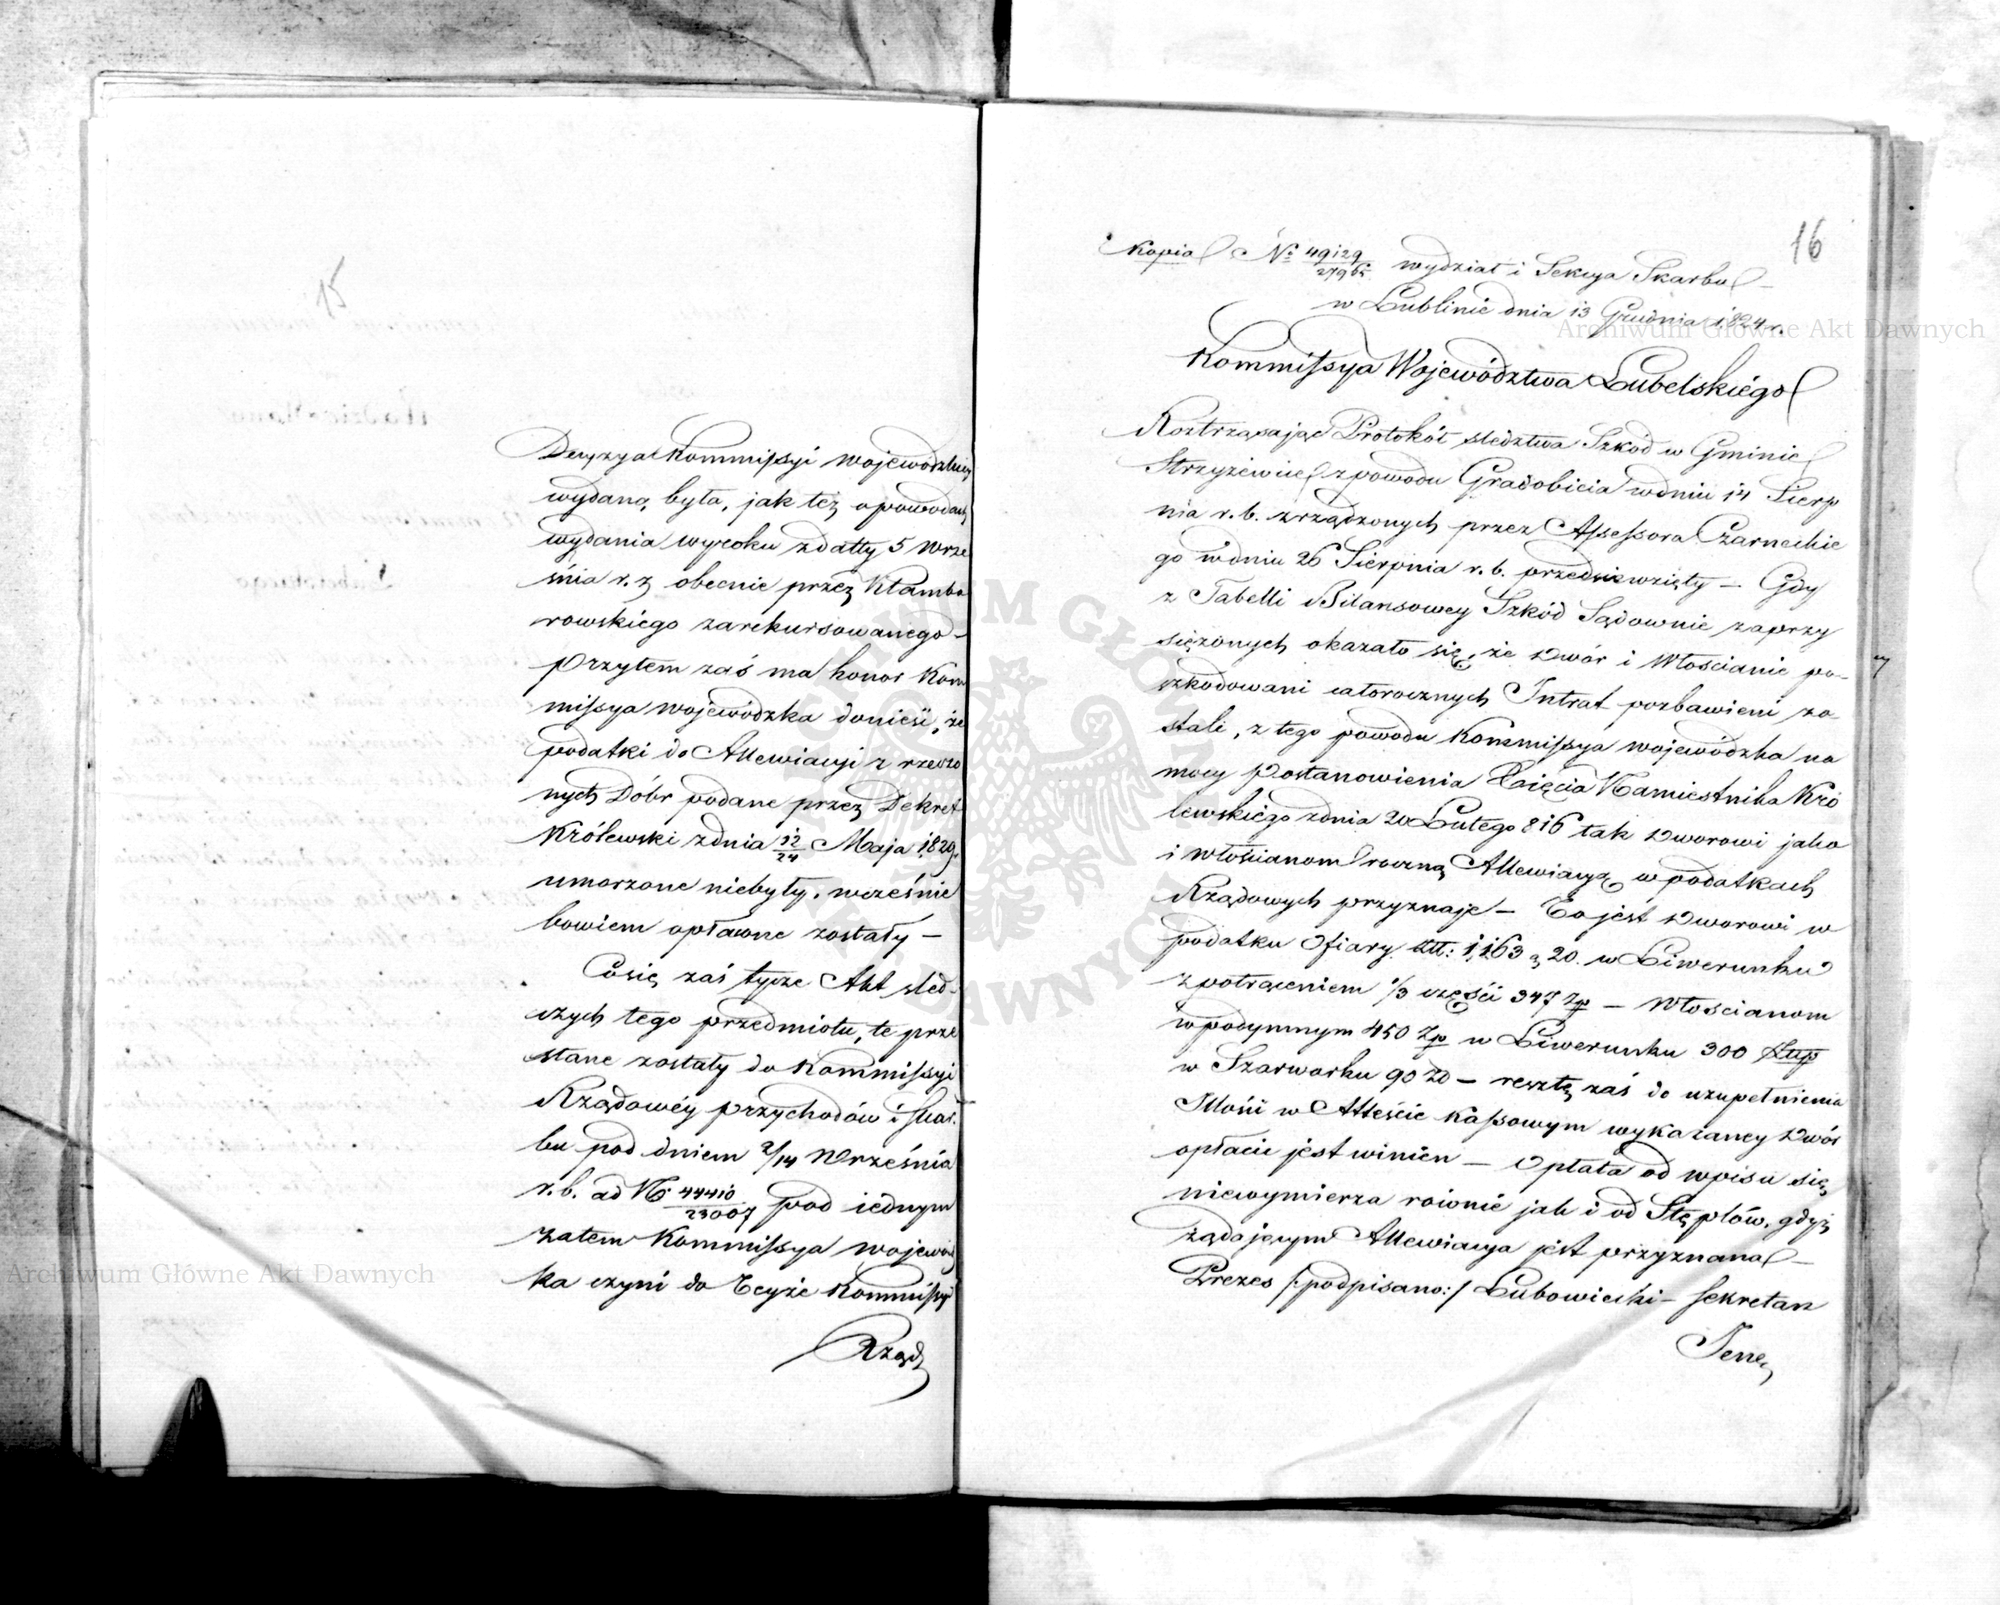 15
Decyzya Kommissyi Wojewódzkiey
wydaną była, jak też o powodach
wydania wyroku z datty 5 Wrze
śnia r. z obecnie przez Klambo
rowskiego zarekursowanego –
Przytem zaś ma honor Kom
missya wojewódzka donieść, że
podatki do Allewiacyi z rzeczo
nych Dóbr podane przez Dekret
Królewski z dnia 12/24 Maja 1829
umorzone niebyły, wcześnie
bowiem opłacone zostały –
Co się zaś tycze Akt śled-
czych tego przedmiotu, te prze
słane zostały do Kommissyi
Rządowéy Przychodów i Skar-
bu pod dniem 2/14 Września
r. b. ad No 44410/23007 pod iednym
zatem Kommissya wojewódz
ka czyni do Teyże Kommissyi
Rząd
16
Kopia No 49129/27965 wydział i Sekcya Skarbu –
w Lublinie dnia 13 Grudnia 1824 r.
Kommissya Województwa Lubelskiégo
Roztrząsając Protokół śledztwa Szkód w Gminie
Strzyżewice z powodu Gradobicia w dniu 14 Sierp
nia r. b. zrządzonych przez Assessora Czarneckie
go w dniu 26 Sierpnia r. b. przedsiewzięty – Gdy
z Tabelli Bilansowey Szkód Sądownie zaprzy
siężonych okazało się, że Dwór i Włościanie po-
szkodowani całorocznych Intrat pozbawieni zo-
stali, z tego powodu Kommissya wojewódzka na
mocy Postanowienia Xsięcia Namiestnika Kró
lewskiégo z dnia 20 Lutego 816 tak Dworowi jako
i włościanom roczną Allewiacyą w podatkach
Rządowych przyznaje – To jest Dworowi w
podatku Ofiary Złł: 1,163 g 20. w Liwerunku
z potrąceniem 1/3 części 347 Zp – Włościanom
w podymnym 450 Zp w Liwerunku 300 Złp
w Szarwarku 90 Zł – resztę zaś do uzupełnienia
Illości w Atteście Kassowym wykazaney Dwór
opłacić jest winien – Opłata od wpisu się
niewymierza równie jak i od Stęplów, gdyż
żądającym Allewiacya jest przyznana –
Prezes /:podpisano:/ Lubowiecki – Sekretarz
Jene
Archiwum Główne Akt Dawnych
Archiwum Główne Akt Dawnych